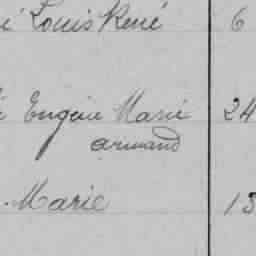 Louis René 6
Eugène Marie 24
armand
Marie 13